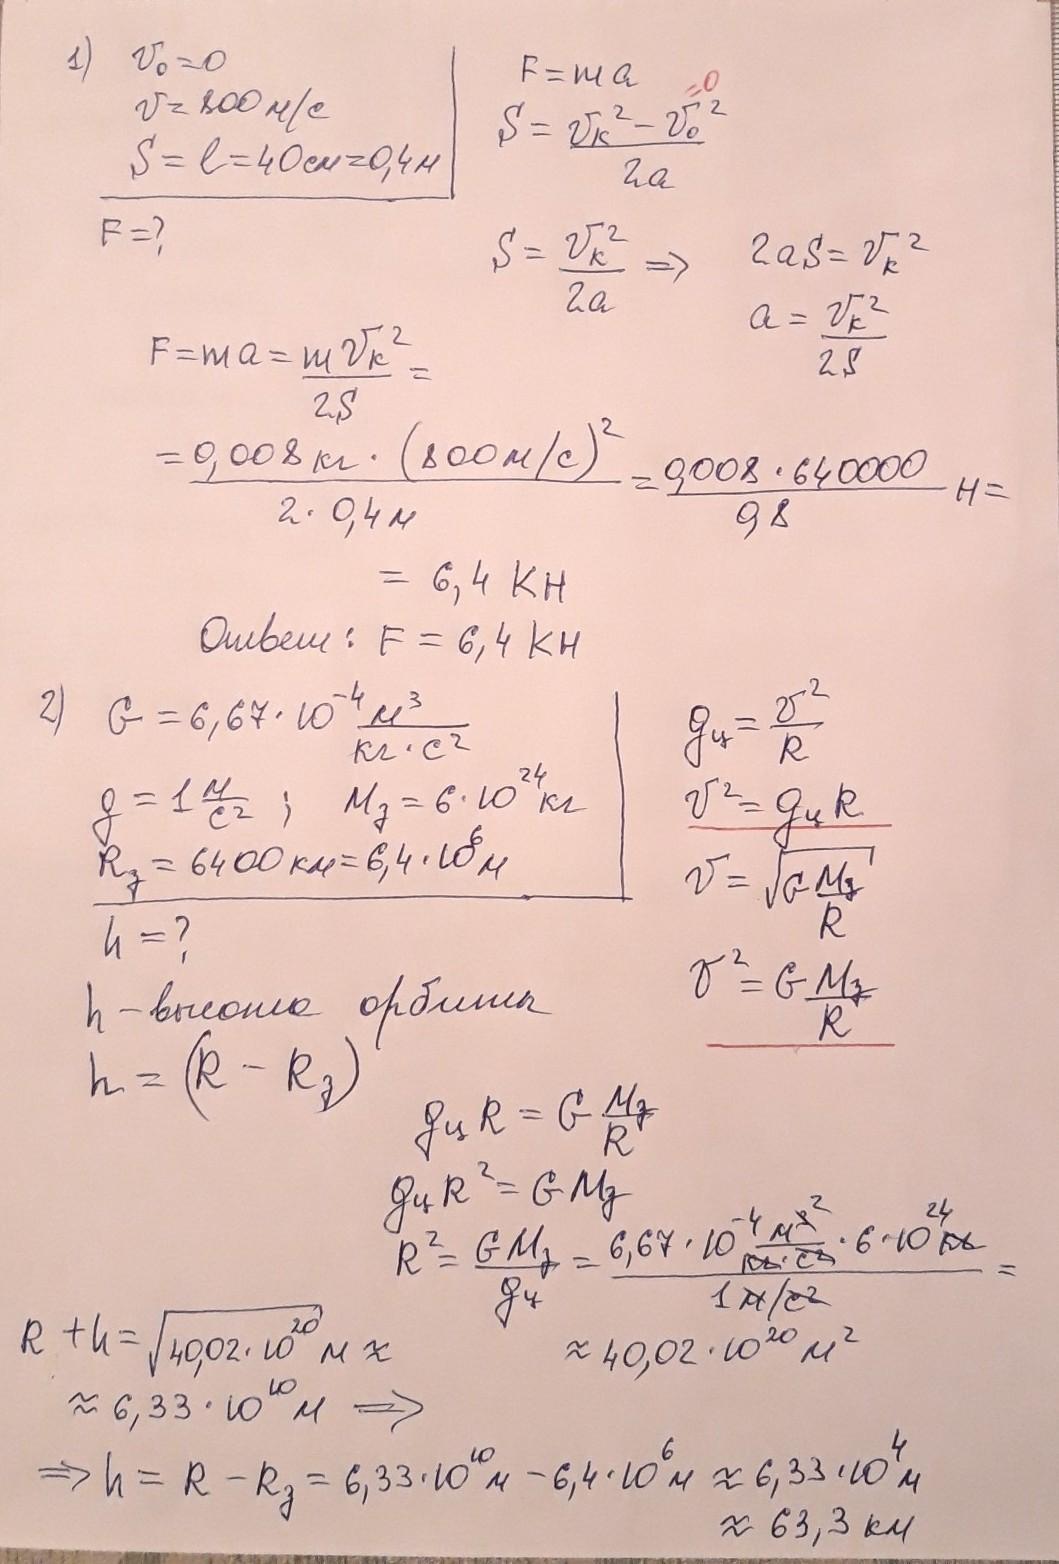 1) v₀ = 0
v = 800 м/с
S = l = 40 см = 0,4 м
F = ?
F = ma
S = (vк² − v₀²)/2a = 0
S = vк²/2a ⇒ 2aS = vк²
a = vк²/2S
F = ma = mvк²/2S =
= 0,008 кг · (800 м/с)²/2 · 0,4 м = 0,008 · 640000/0,8 Н =
= 6,4 КН
Ответ: F = 6,4 КН
2) G = 6,67 · 10⁻⁴ м³/кг · с²
g = 1 м/с² ; Mз = 6 · 10²⁴ кг
Rз = 6400 км = 6,4 · 10⁶ м
h = ?
gц = v²/R
v² = gц R
v = √(G Mз/R)
v² = G Mз/R
h – высота орбиты
h = (R − Rз)
gц R = G Mз/R
gц R² = G Mз
R² = G Mз/gц = 6,67 · 10⁻⁴ м³² /кг · с² · 6 · 10²⁴ кг/1 м/с² =
≈ 40,02 · 10²⁰ м²
R + h = √40,02 · 10²⁰ м ≈
≈ 6,33 · 10¹⁰ м ⇒
⇒ h = R − Rз = 6,33 · 10¹⁰ м − 6,4 · 10⁶ м ≈ 6,33 · 10⁴ м
≈ 63,3 км